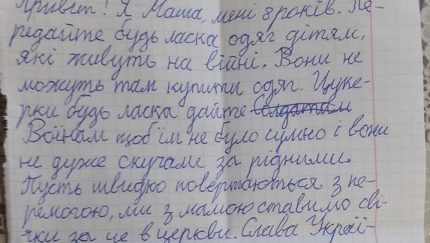 Привіт! Я Маша, мені 8 років. Пе-
редайте будь ласка одяг дітям,
які живуть на війні. Вони не
можуть там купити одяг. Цуке-
рки будь ласка дайте солдатам
Воїнам щоб їм не було сумно і вони
не дуже скучами за рідними.
Пусть швидко повертаються з пе-
ремогою, ми з мамою ставимо сві-
чки за це в церкви. Слава Украї-